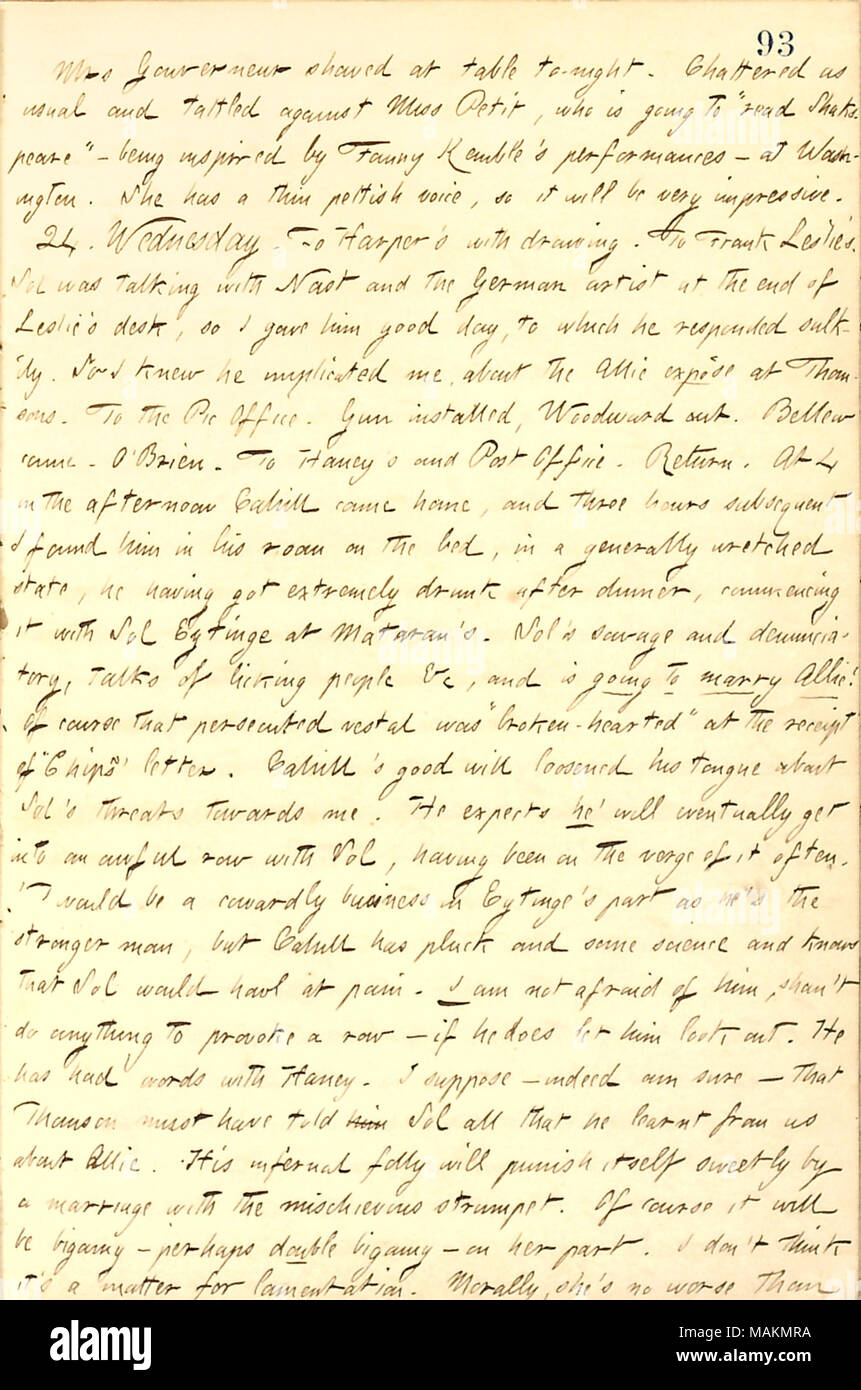 93
Mrs Gouverneur showed at table to-night. Chattered as
usual and tattled against Miss Petit, who is going to "read Shaks-
peare" - being inspired by Fanny Kemble's performances - at Wash-
ington. She has a thin pettish voice, so it will be very impressive.
24. Wednesday. To Harper's with drawing. To Frank Leslie's.
Sol was talking with Nast and the German artist at the end of
Leslie's desk, so I gave him good day, to which he responded sulk-
ily. So I knew he implicated me, about the Allie exposé at Thom-
sons. To the Pic Office. Gun installed, Woodward out. Bellew
came. O'Brien. To Haney's and Post Office. Return. At 4
in the afternoon Cahill came home, and three hours subsequent
I found him in his room on the bed, in a generally wretched
state, he having got extremely drunk after dinner, commencing
it with Sol Eytinge at Mataran's. Sol's savage and denuncia-
tory, talks of licking people &c, and is going to marry Allie!
Of course that persecuted vestal was "broken-hearted" at the receipt
of "Chips" letter. Cahill's good will loosened his tongue about
Sol's threats towards me. He expects he' will eventually get
into an awful row with Sol, having been on the verge of it often.
'T would be a cowardly business on Eytinge's part as he's the
stronger man, but Cahill has pluck and some science and knows
that Sol would howl at pain. I am not afraid of him, shan't
do anything to provoke a row - if he does let him look out. He
has had words with Haney. I suppose - indeed am sure - that
Thomson must have told him Sol all that he learnt from us
about Allie. His infernal folly will punish itself sweetly by
a marriage with the mischievous strumpet. Of course it will
be bigamy - perhaps double bigamy - on her part. I don't think
it's a matter for lamentation. Morally, she's no worse than
alamy
Image ID: MAKMRA
www.alamy.com